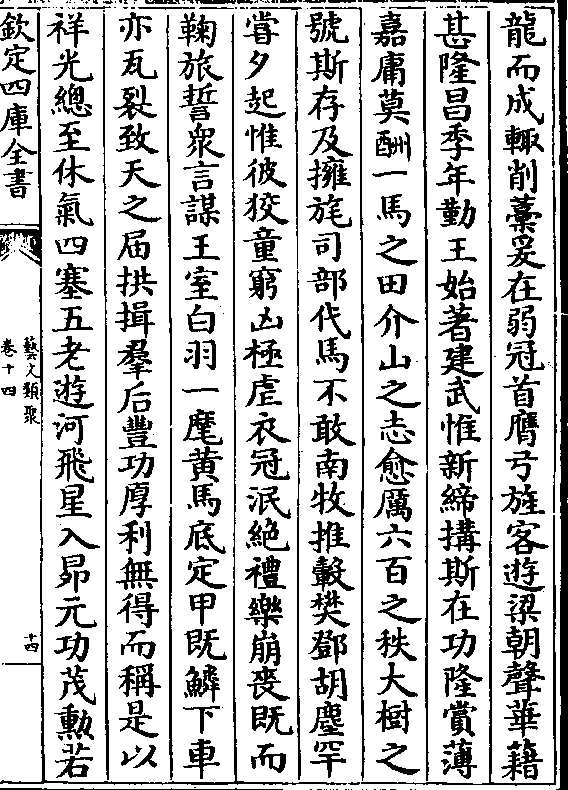 龍而成輙削藁爰在弱冠首膺弓旌客遊梁朝聲華籍
甚隆昌季年勤王始著建武惟新締搆斯在功隆賞薄
嘉庸莫酬一馬之田介山之志愈厲六百之秩大樹之
號斯存及擁旄司部代馬不敢南牧推轂樊鄧胡塵罕
嘗夕起惟彼狡童窮凶極虐衣冠泯絶禮樂崩喪既而
鞠旅誓衆言謀王室白羽一麾黄馬底定甲既鱗下車
亦瓦裂致天之届拱揖羣后豐功厚利無得而稱是以
祥光總至休氣四塞五老遊河飛星入昴元功茂勲若
欽定四庫全書
藝文類聚
卷十四
十四